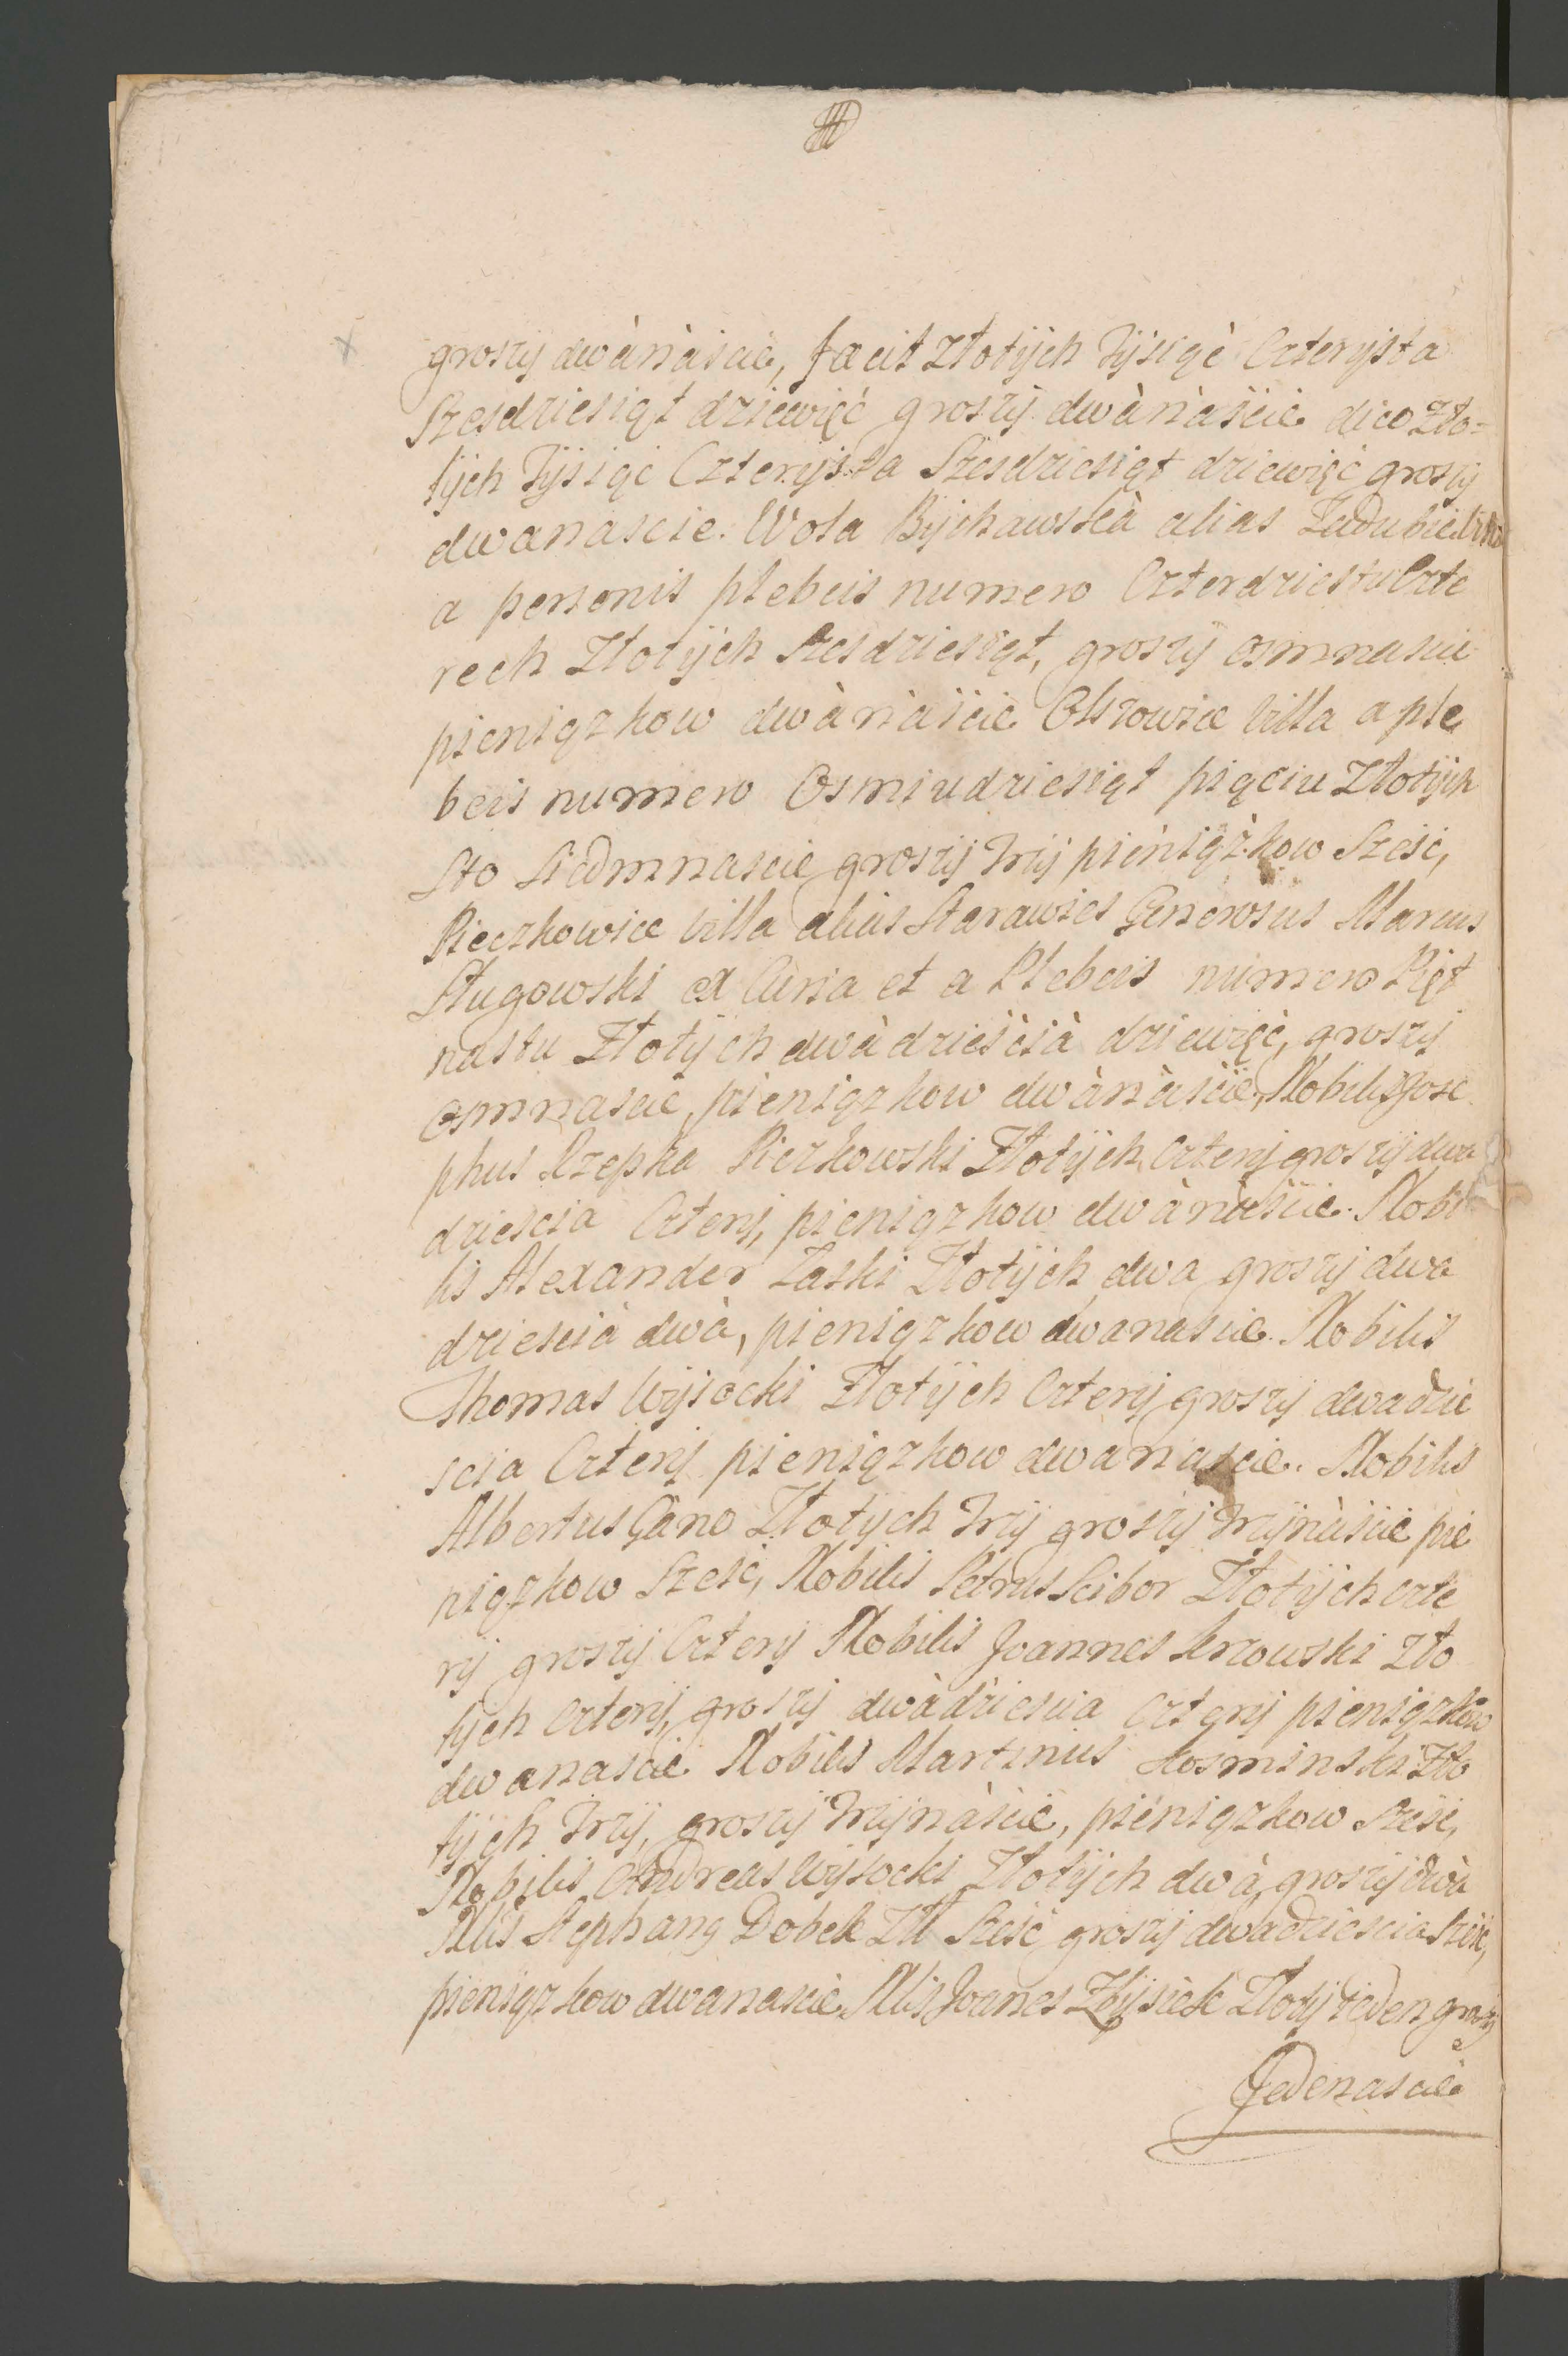 groszy dwànàscie, facit złotÿch Tÿsiąc Czterysta
Szesdziesiąt dziewięć groszÿ dwànàscie dico Zło=
tÿch Tÿsiąc Czterÿsta Szesdziesiąt dziewięć groszy
dwanascie. Wola Bÿchawskà alias
a personis plebeis numero Czterdziestu Czte
rech Złotÿch Szesdziesiąt, groszÿ osmnascie
pieniązkow dwànàscie Olszowice Villa a ple
beis numero Osmiudziesiąt pięciu Złotÿch
Sto Siedmnascie groszÿ trzÿ pieniązkow Szesc,
Pieczkowice Villa alias Starawies Generosus Marcus
Sługowski ex Curia et a Plebeis numero Pięt
nastu Złotÿch dwàdziescià dziewięć, groszy
osmnascie, pieniązkow dwànàscie, Nobilis Jose
phus Rzepka Pieczkowski Złotÿch Czterÿ groszÿ dwa
dziescia Czterÿ, pieniązkow dwànàscie. Nobi
lis Alexander Zaski Złotÿch dwa groszy dwa
dziescià dwà, pieniązkow dwanascie. Nobilis
Thomas Wÿsocki Złotÿch Czterÿ groszy dwadzie
scia Czterÿ pieniązkow dwanascie. Nobilis
Albertus Gano Złotÿch trzÿ groszÿ trzÿnàscie pie
niązkow Szesc, Nobilis Petrus Scibor Złotÿch czte
rÿ groszÿ Czterÿ Nobilis Joannes Zło
tÿch Czterÿ, groszÿ dwàdziescia Czterÿ pieniązkow
dwanascie Nobilis Martinus Kosminski Zło
tÿch trzÿ, groszÿ trzÿnàscie, pieniązkow Szesc,
Nobilis Andreas Wÿsocki Złotÿch dwà, groszÿ dwà
Nlis Stephang Dobek Złł Szesc groszÿ dwadziescia Szesc,
pieniązkow dwanascie Nlis Joanes Zbÿsiek Złotÿ ieden groszÿ
Jedenascie